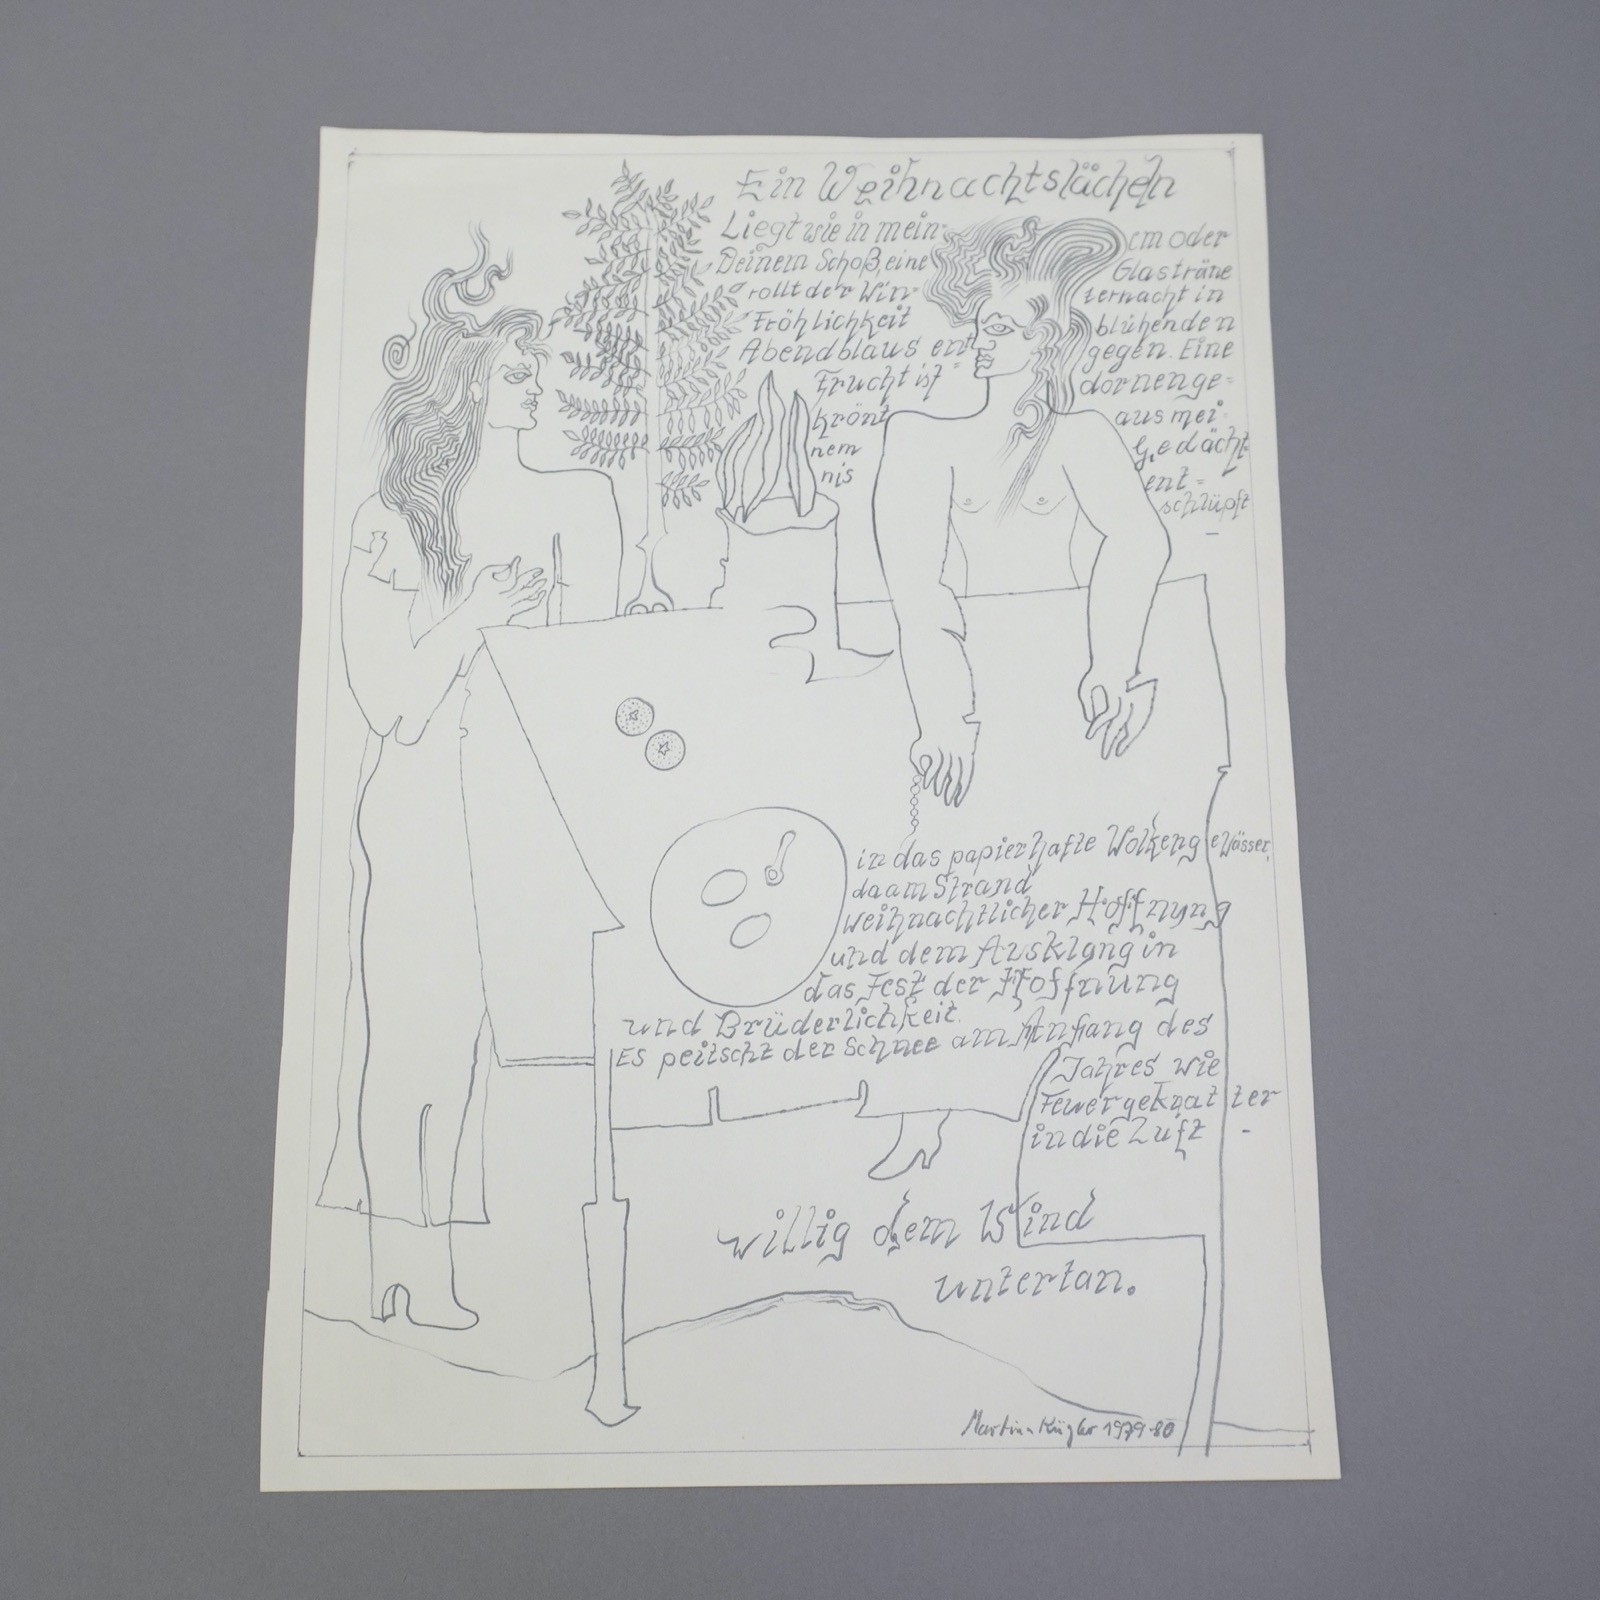 Ein Weihnachtslächeln
Liegt wie in mein- em oder
Deinem Schoß, eine Glasträne
rollt der Win- ternacht in
Fröhlichkeit blühenden
Abendblaus ent- gegen. Eine
Frucht ist dornenge-
krönt aus mei-
nem Gedächt-
nis ent-
schlüpft
–
in das papierhafte Wolkengewässer,
da am Strand
weihnachtlicher Hoffnung
und dem Ausklang in
das Fest der Hoffnung
und Brüderlichkeit.
Es peitscht der Schnee am Anfang des
Jahres wie
Feuergeknatter
in die Luft –
willig dem Wind
untertan.
Martin Kügler 1979-80